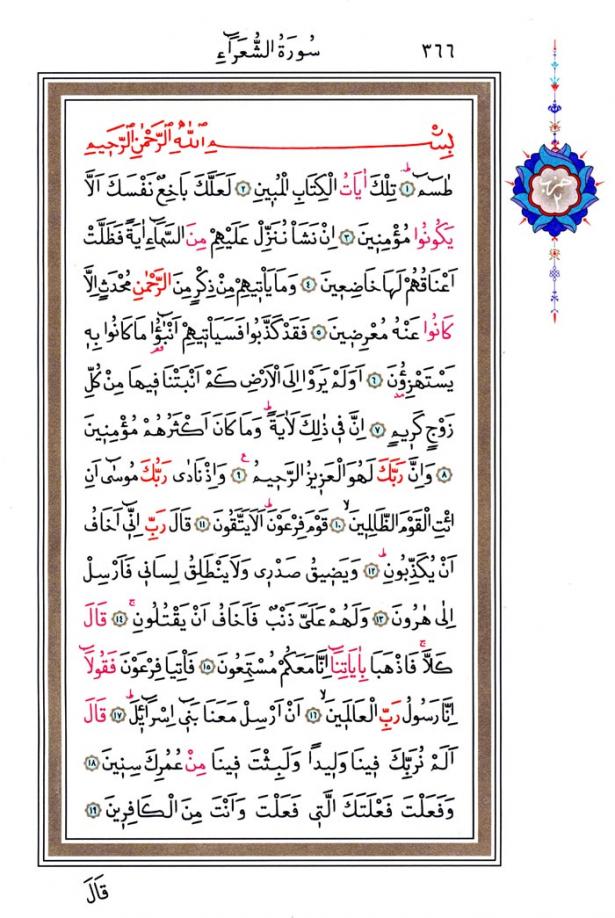 ٣٦٦ سُورَةُ الشُّعَرَٓاءِ
حزب ٢
بِسْمِ اللّٰهِ الرَّحْمٰنِ الرَّحٖيمِ
طٰسٓمٓ ۜ ﴿١﴾ تِلْكَ اٰيَاتُ الْكِتَابِ الْمُبٖينِ ﴿٢﴾ لَعَلَّكَ بَاخِعٌ نَفْسَكَ اَلَّا
يَكُونُوا مُؤْمِنٖينَ ﴿٣﴾ اِنْ نَشَأْ نُنَزِّلْ عَلَيْهِمْ مِنَ السَّمَٓاءِ اٰيَةً فَظَلَّتْ
اَعْنَاقُهُمْ لَهَا خَاضِعٖينَ ﴿٤﴾ وَمَا يَأْتٖيهِمْ مِنْ ذِكْرٍ مِنَ الرَّحْمٰنِ مُحْدَثٍ اِلَّا
كَانُوا عَنْهُ مُعْرِضٖينَ ﴿٥﴾ فَقَدْ كَذَّبُوا فَسَيَأْتٖيهِمْ اَنْبٰٓؤُ۬ا مَا كَانُوا بِهٖ
يَسْتَهْزِؤُ۫نَ ﴿٦﴾ اَوَلَمْ يَرَوْا اِلَى الْاَرْضِ كَمْ اَنْبَتْنَا فٖيهَا مِنْ كُلِّ
زَوْجٍ كَرٖيمٍ ﴿٧﴾ اِنَّ فٖي ذٰلِكَ لَاٰيَةًؕ وَمَا كَانَ اَكْثَرُهُمْ مُؤْمِنٖينَ
﴿٨﴾ وَاِنَّ رَبَّكَ لَهُوَ الْعَزٖيزُ الرَّحٖيمُ ﴿٩﴾ وَاِذْ نَادٰى رَبُّكَ مُوسٰٓى اَنِ
ائْتِ الْقَوْمَ الظَّالِمٖينَۙ ﴿١٠﴾ قَوْمَ فِرْعَوْنَؕ اَلَا يَتَّقُونَ ﴿١١﴾ قَالَ رَبِّ اِنّٖٓي اَخَافُ
اَنْ يُكَذِّبُونِؕ ﴿١٢﴾ وَيَضٖيقُ صَدْرٖي وَلَا يَنْطَلِقُ لِسَانٖي فَاَرْسِلْ
اِلٰى هٰرُونَ ﴿١٣﴾ وَلَهُمْ عَلَيَّ ذَنْبٌ فَاَخَافُ اَنْ يَقْتُلُونِۚ ﴿١٤﴾ قَالَ
كَلَّاۚ فَاذْهَبَا بِاٰيَاتِنَٓا اِنَّا مَعَكُمْ مُسْتَمِعُونَ ﴿١٥﴾ فَأْتِيَا فِرْعَوْنَ فَقُولَٓا
اِنَّا رَسُولُ رَبِّ الْعَالَمٖينَۙ ﴿١٦﴾ اَنْ اَرْسِلْ مَعَنَا بَنٖٓي اِسْرَٓائٖلَؕ ﴿١٧﴾ قَالَ
اَلَمْ نُرَبِّكَ فٖينَا وَلٖيدًا وَلَبِثْتَ فٖينَا مِنْ عُمُرِكَ سِنٖينَ ﴿١٨﴾
وَفَعَلْتَ فَعْلَتَكَ الَّتٖي فَعَلْتَ وَاَنْتَ مِنَ الْكَافِرٖينَ ﴿١٩﴾
قَالَ